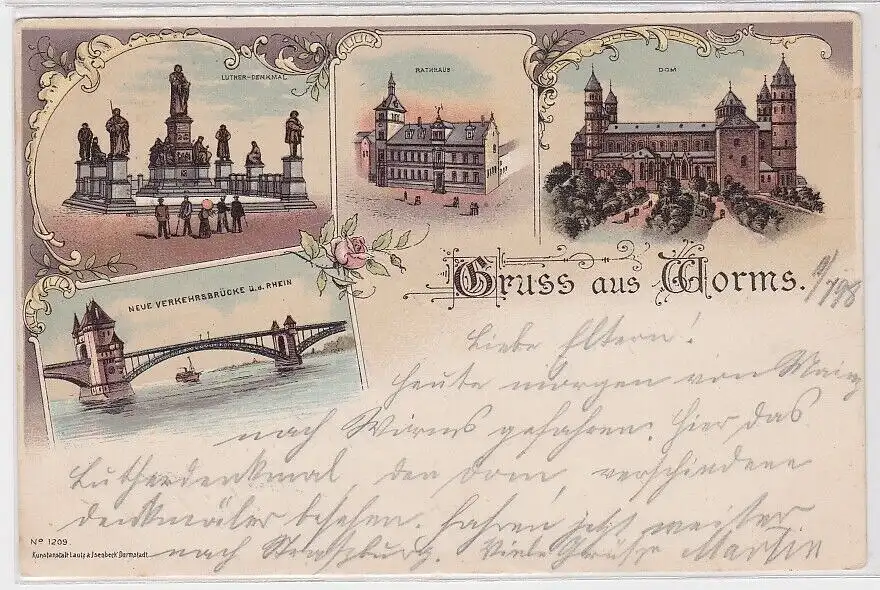 LUTHER-DENKMAL
RATHHAUS
DOM
NEUE VERKEHRSBRÜCKE Ü. D. RHEIN
Gruss aus Worms.
Liebe Eltern!
Heute morgen von Mainz
nach Worms gefahren. Hier das
Lutherdenkmal, den Dom, verschiedene
Denkmäler besehen. Fahren jetzt weiter
nach Strassburg. Viele Grüsse Martin
No 1209.
Kunstanstalt Lautz & Isenbeck Darmstadt